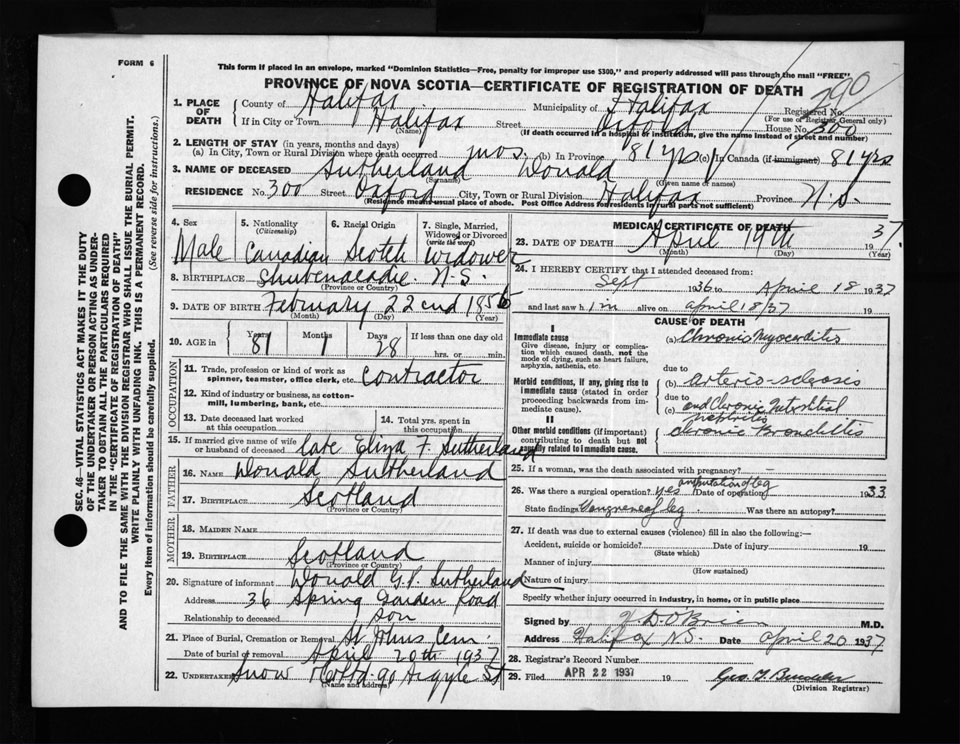 FORM 6
This form if placed in an envelope, marked "Dominion Statistics—Free, penalty for improper use $300," and properly addressed will pass through the mail "FREE".
PROVINCE OF NOVA SCOTIA—CERTIFICATE OF REGISTRATION OF DEATH
290
1. PLACE OF DEATH County of Halifax Municipality of Halifax Registered No.
(For use of Registrar General only)
If in City or Town Halifax Street Oxford House No. 300
(Name) (If death occurred in a hospital or institution, give the name instead of street and number)
2. LENGTH OF STAY (in years, months and days)
(a) In City, Town or Rural Division where death occurred mos. (b) In Province 81 yrs (c) In Canada (if immigrant) 81 yrs
3. NAME OF DECEASED Sutherland Donald
(Surname) (Given name or names)
RESIDENCE No. 300 Street Oxford City, Town or Rural Division Halifax Province N.S.
(Residence means usual place of abode. Post Office Address for residents in rural parts not sufficient)
4. Sex 5. Nationality (Citizenship) 6. Racial Origin 7. Single, Married, Widowed or Divorced (write the word)
Male Canadian Scotch Widower
8. BIRTHPLACE Shubenacadie N.S.
(Province or Country)
9. DATE OF BIRTH February 22nd 1856
(Month) (Day) (Year)
10. AGE in Years 81 Months 1 Days 28 If less than one day old
hrs. or min.
OCCUPATION
11. Trade, profession or kind of work as spinner, teamster, office clerk, etc. Contractor
12. Kind of industry or business, as cotton-mill, lumbering, bank, etc.
13. Date deceased last worked at this occupation 14. Total yrs. spent in this occupation
15. If married give name of wife or husband of deceased late Eliza F. Sutherland
FATHER
16. NAME Donald Sutherland
17. BIRTHPLACE Scotland
(Province or Country)
MOTHER
18. MAIDEN NAME
19. BIRTHPLACE Scotland
(Province or Country)
20. Signature of informant Donald G. S. Sutherland
Address 36 Spring Garden Road
Relationship to deceased son
21. Place of Burial, Cremation or Removal St Johns Cem.
Date of burial or removal April 20th 1937
22. Undertaker Snow 90 Argyle St
(Name and address)
MEDICAL CERTIFICATE OF DEATH
23. DATE OF DEATH April 19th 1937.
(Month) (Day) (Year)
24. I HEREBY CERTIFY that I attended deceased from
Sept 1936 to April 18 1937
and last saw h im alive on April 18/37
CAUSE OF DEATH
I
Immediate cause
Give disease, injury or complication which caused death, not the mode of dying, such as heart failure, asphyxia, asthenia, etc.
(a) Chronic Myocarditis
due to
Morbid conditions, if any, giving rise to immediate cause (stated in order proceeding backwards from immediate cause).
(b) arterio-sclerosis
due to
(c) and Chronic Intestitial nephritis
II
Other morbid conditions (if important) contributing to death but not causally related to immediate cause.
Chronic Bronchitis
25. If a woman, was the death associated with pregnancy? —
26. Was there a surgical operation? yes amputation of leg Date of operation 1933
State findings Gangrene of leg Was there an autopsy?
27. If death was due to external causes (violence) fill in also the following:—
Accident, suicide or homicide? Date of injury 19
(State which)
Manner of injury
(How sustained)
Nature of injury
Specify whether injury occurred in industry, in home, or in public place
Signed by D O'Brien M.D.
Address Halifax N.S. Date April 20 1937
28. Registrar's Record Number
29. Filed APR 22 1937 19 Geo.
(Division Registrar)
SEC. 46—VITAL STATISTICS ACT MAKES IT THE DUTY
OF THE UNDERTAKER OR PERSON ACTING AS UNDER-
TAKER TO OBTAIN ALL THE PARTICULARS REQUIRED
IN THE "CERTIFICATE OF REGISTRATION OF DEATH"
AND TO FILE THE SAME WITH THE DIVISION REGISTRAR WHO SHALL ISSUE THE BURIAL PERMIT.
WRITE PLAINLY WITH UNFADING INK. THIS IS A PERMANENT RECORD.
Every item of information should be carefully supplied. (See reverse side for instructions.)